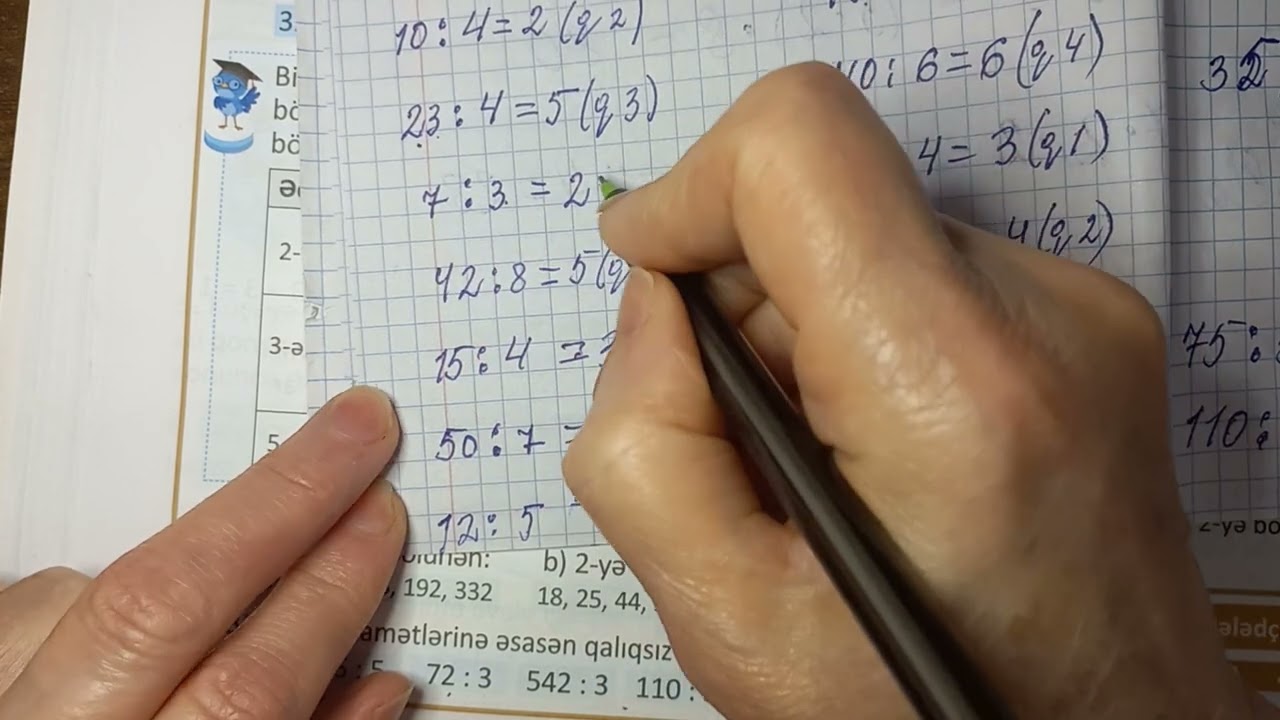 3.
Bi
bö
bö
2-
3-ə
5
10 : 4 = 2 (q 2)
23 : 4 = 5 (q 3)
7 : 3 = 2
42 : 8 = 5 (q
15 : 4 =
50 : 7 =
12 : 5
40 : 6 = 6 (q 4)
4 = 3 (q 1)
4 (q 2)
75 :
110 :
b) 2-yə
192, 332 18, 25, 44,
amətlərinə əsasən qalıqsız
: 5 72 : 3 542 : 3 110 :